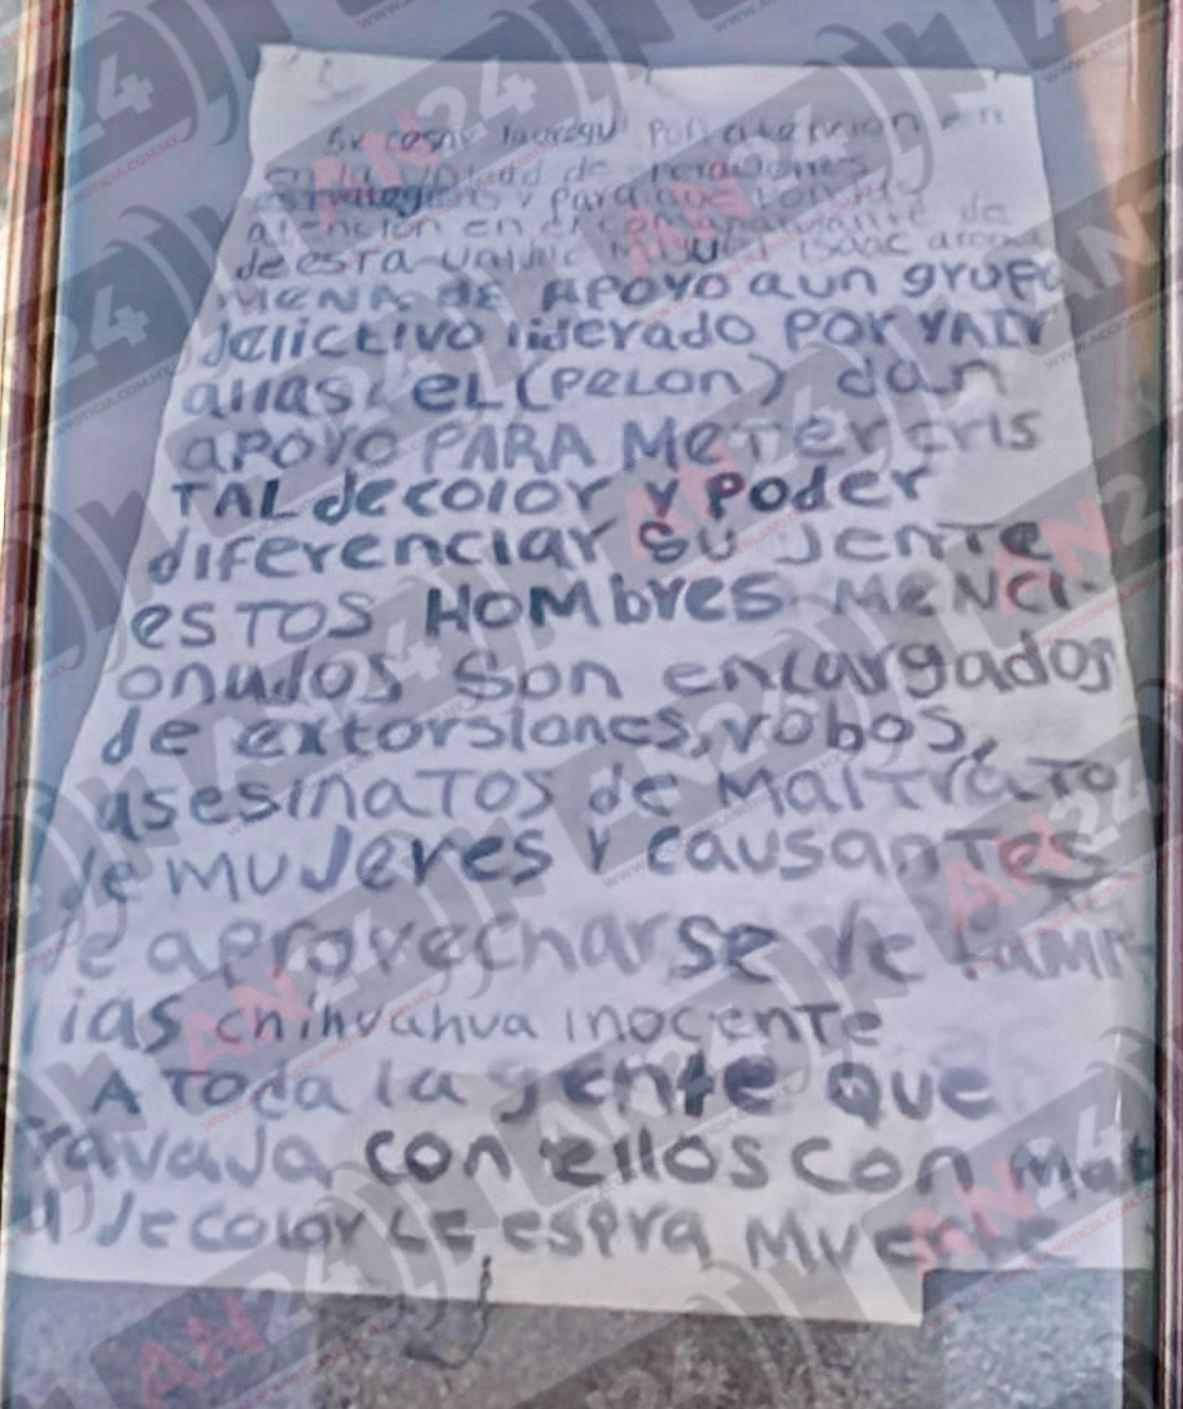 Sr cesar jauregui Pon atencion en
en la unidad de
estrategicas y para que
atencion en el comandante de
de esta unidad isaac
MENA DE APOYO a un grupo
delictivo liderado POR YAIR
alias: eL (PeLon) dan
aPOYO PARA MeTer cris
TAL de color y Poder
diferenciar su JenTe
esTOS HOMbres MeNCi-
onados son encargados
de extorsiones, robos,
asesinaTOS de MalTraTo
de MuJeres y causanTes
de aprovecharse de fami-
ias chihuahua inocenTe
A Toda la gente que
TravaJa con ellos con Mat
de color Le espra Muerte
AN24